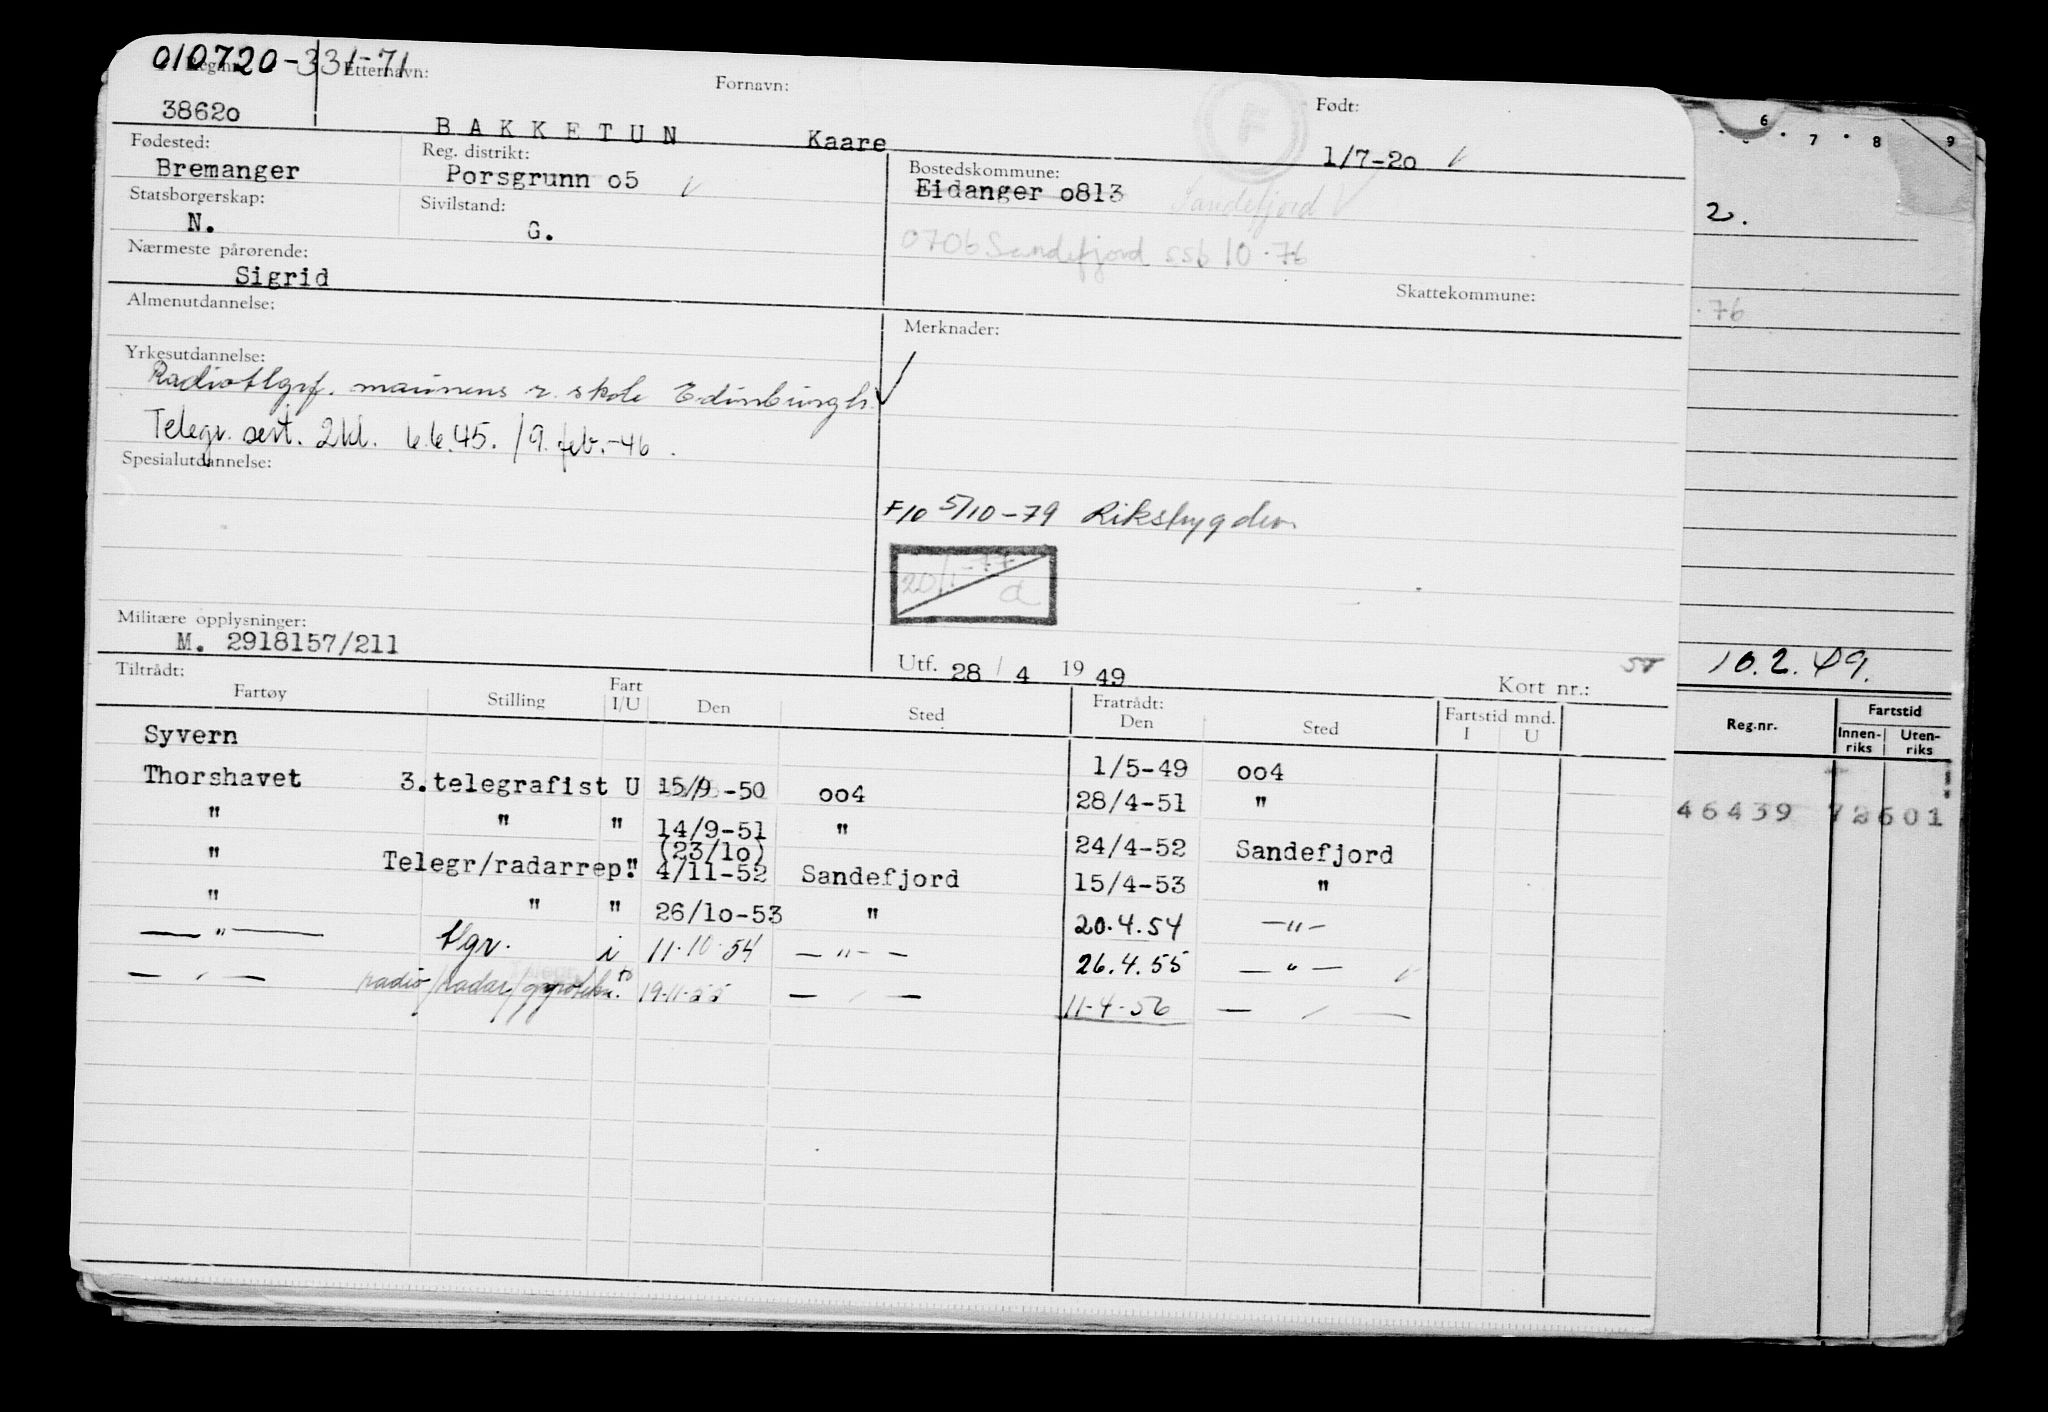 010720-331-71
Reg.nr. Etternavn: Fornavn: Født:
38620 BAKKETUN Kaare 1/7-20 √
Fødested: Reg. distrikt: Bostedskommune:
Bremanger Porsgrunn o5 √ Eidanger o813 Sandefjord √
Statsborgerskap: Sivilstand:
N. G. 0706 Sandefjord ssb 10.76
Nærmeste pårørende:
Sigrid
Skattekommune:
Almenutdannelse: Merknader:
Yrkesutdannelse:
Radiotlgrf. marinens r. skole Edinburgh. √
Telegr. sert. 2kl. 6.6.45. /9. feb.-46.
Spesialutdannelse:
F10 5/10-79 Rikstrygden
20/1-77 a
Militære opplysninger:
M. 2918157/211
Utf. 28 / 4 1949 Kort nr.:
Tiltrådt: Fratrådt:
Fartøy Stilling Fart I/U Den Sted Den Sted Fartstid mnd. I U
Syvern 1/5-49 oo4
Thorshavet 3.telegrafist U 15/9-50 oo4 28/4-51 "
" " " 14/9-51 " 24/4-52 Sandefjord
(23/1o)
" Telegr/radarrep." 4/11-52 Sandefjord 15/4-53 "
" " " 26/1o-53 " 20.4.54 —"—
—"— tlgr. i 11.10.54 —"— 26.4.55 —"— √
—"— radio/radar/ 19-11-55 —"— 11-4-56 —"—
6 7 8 9
2.
.76
10.2.49.
Reg.nr. Fartstid
Innen-riks Uten-riks
46439 72601